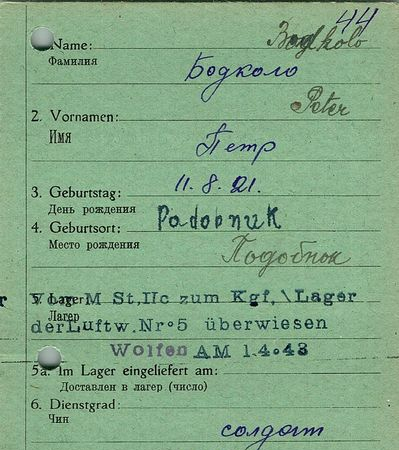 44
1. Name: Bodkolo
Фамилия
Бодколо
Peter
2. Vornamen:
Имя
Петр
3. Geburtstag: 11.8.21.
День рождения
4. Geburtsort: Padobnuk
Место рождения
Подобнок
5. Lager Vom M St,IIc zum Kgf,\Lager
Лагер
der Luftw. Nr°5 überwiesen
Wolfen AM 1.4.43
5a. Im Lager eingeliefert am:
Доставлен в лагер (число)
6. Dienstgrad:
Чин
солдат